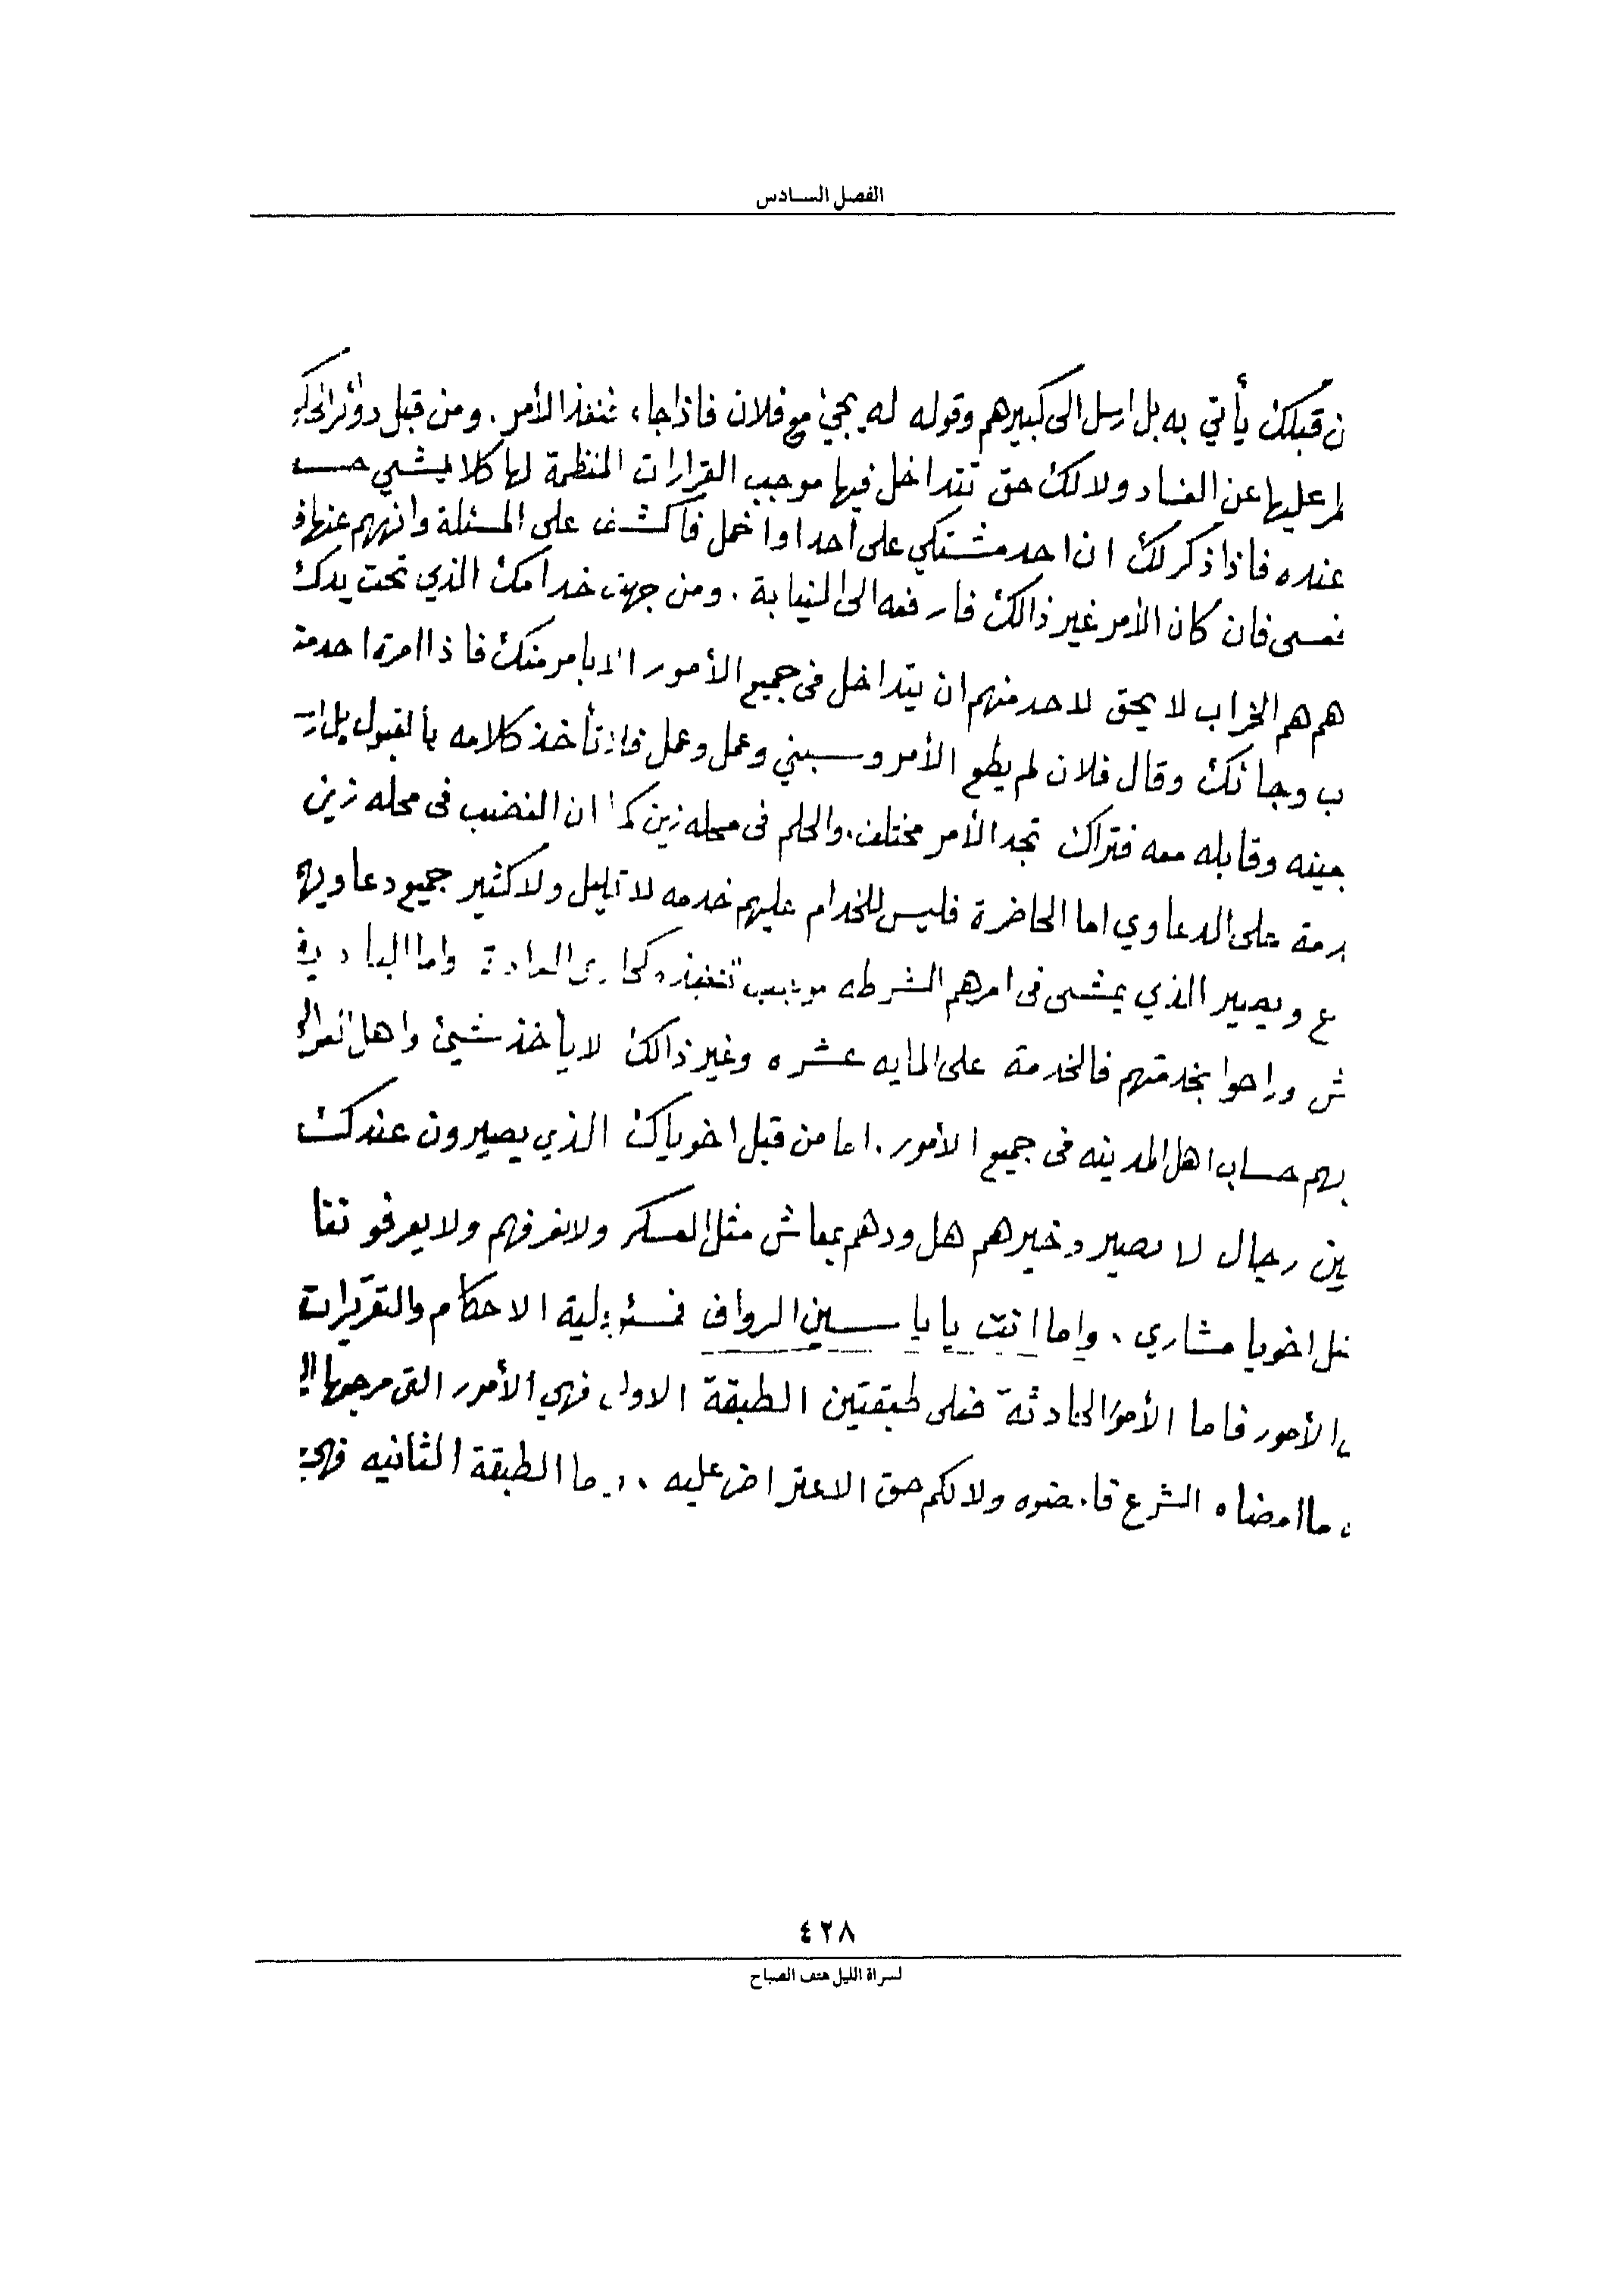 الفصل السادس
ن قبلك يأتي به بل ارسل الى كبيرهم وقوله له يجي مع فلان فاذا جاء تنفذ الأمر . ومن قبل دوائر الحكو
عليها عن الفساد ولا لك حق تتداخل فيها موجب القرارات المنظمة لها كلا يمشي حسب
عنده فاذا ذكر لك ان احد مشتكي على احد او اخمل فاكشف على المسئلة وانهم عنها
فان كان الأمر غير ذالك فارفعه الى النيابة . ومن جهت خدامك الذي تحت يدك
هم هم الخراب لا يحق لاحد منهم ان يتداخل في جميع الأمور الا بامر منك فاذا امرة احد من
ب وجا نك وقال فلان لم يطع الأمر وسبني وعمل وعمل تأخذ كلامه بالقبول بل
بينه وقابله معه فتراك تجد الأمر مختلف . والحلم في محله زين كما ان الغضب في محله زين
دمة على الدعاوي اما الحاضرة فليس للخدام عليهم خدمه لا قليل ولا كثير جميع دعاويهم
ع ويصير الذي يمشي في امرهم الشرطه موجب تنفيذه كجاري العادة واما البادية
ش وراحوا بخدمتهم فالخدمة على المايه عشره وغير ذالك لا يأخذ شيئ واهل
بهم حساب اهل المدينه في جميع الأمور . اما من قبل اخوياك الذي يصيرون عندك
ين رجال لا يصير وخيرهم هل ودهم بمعاش مثل العسكر ولا نعرفهم ولا يعرفو
اخويا مشاري . واما انت يا يا سين الرواف فمسئولية الاحكام والتقريرات
الأمور فاما الأمور الحادثة فعلى طبقتين الطبقة الاولى فهي الأمور التي مرجعها
ما امضاه الشرع فامضوه ولا لكم حق الاعتراض عليه . واما الطبقة الثانيه فهي
٤٢٨
لسراة الليل هتف الصباح